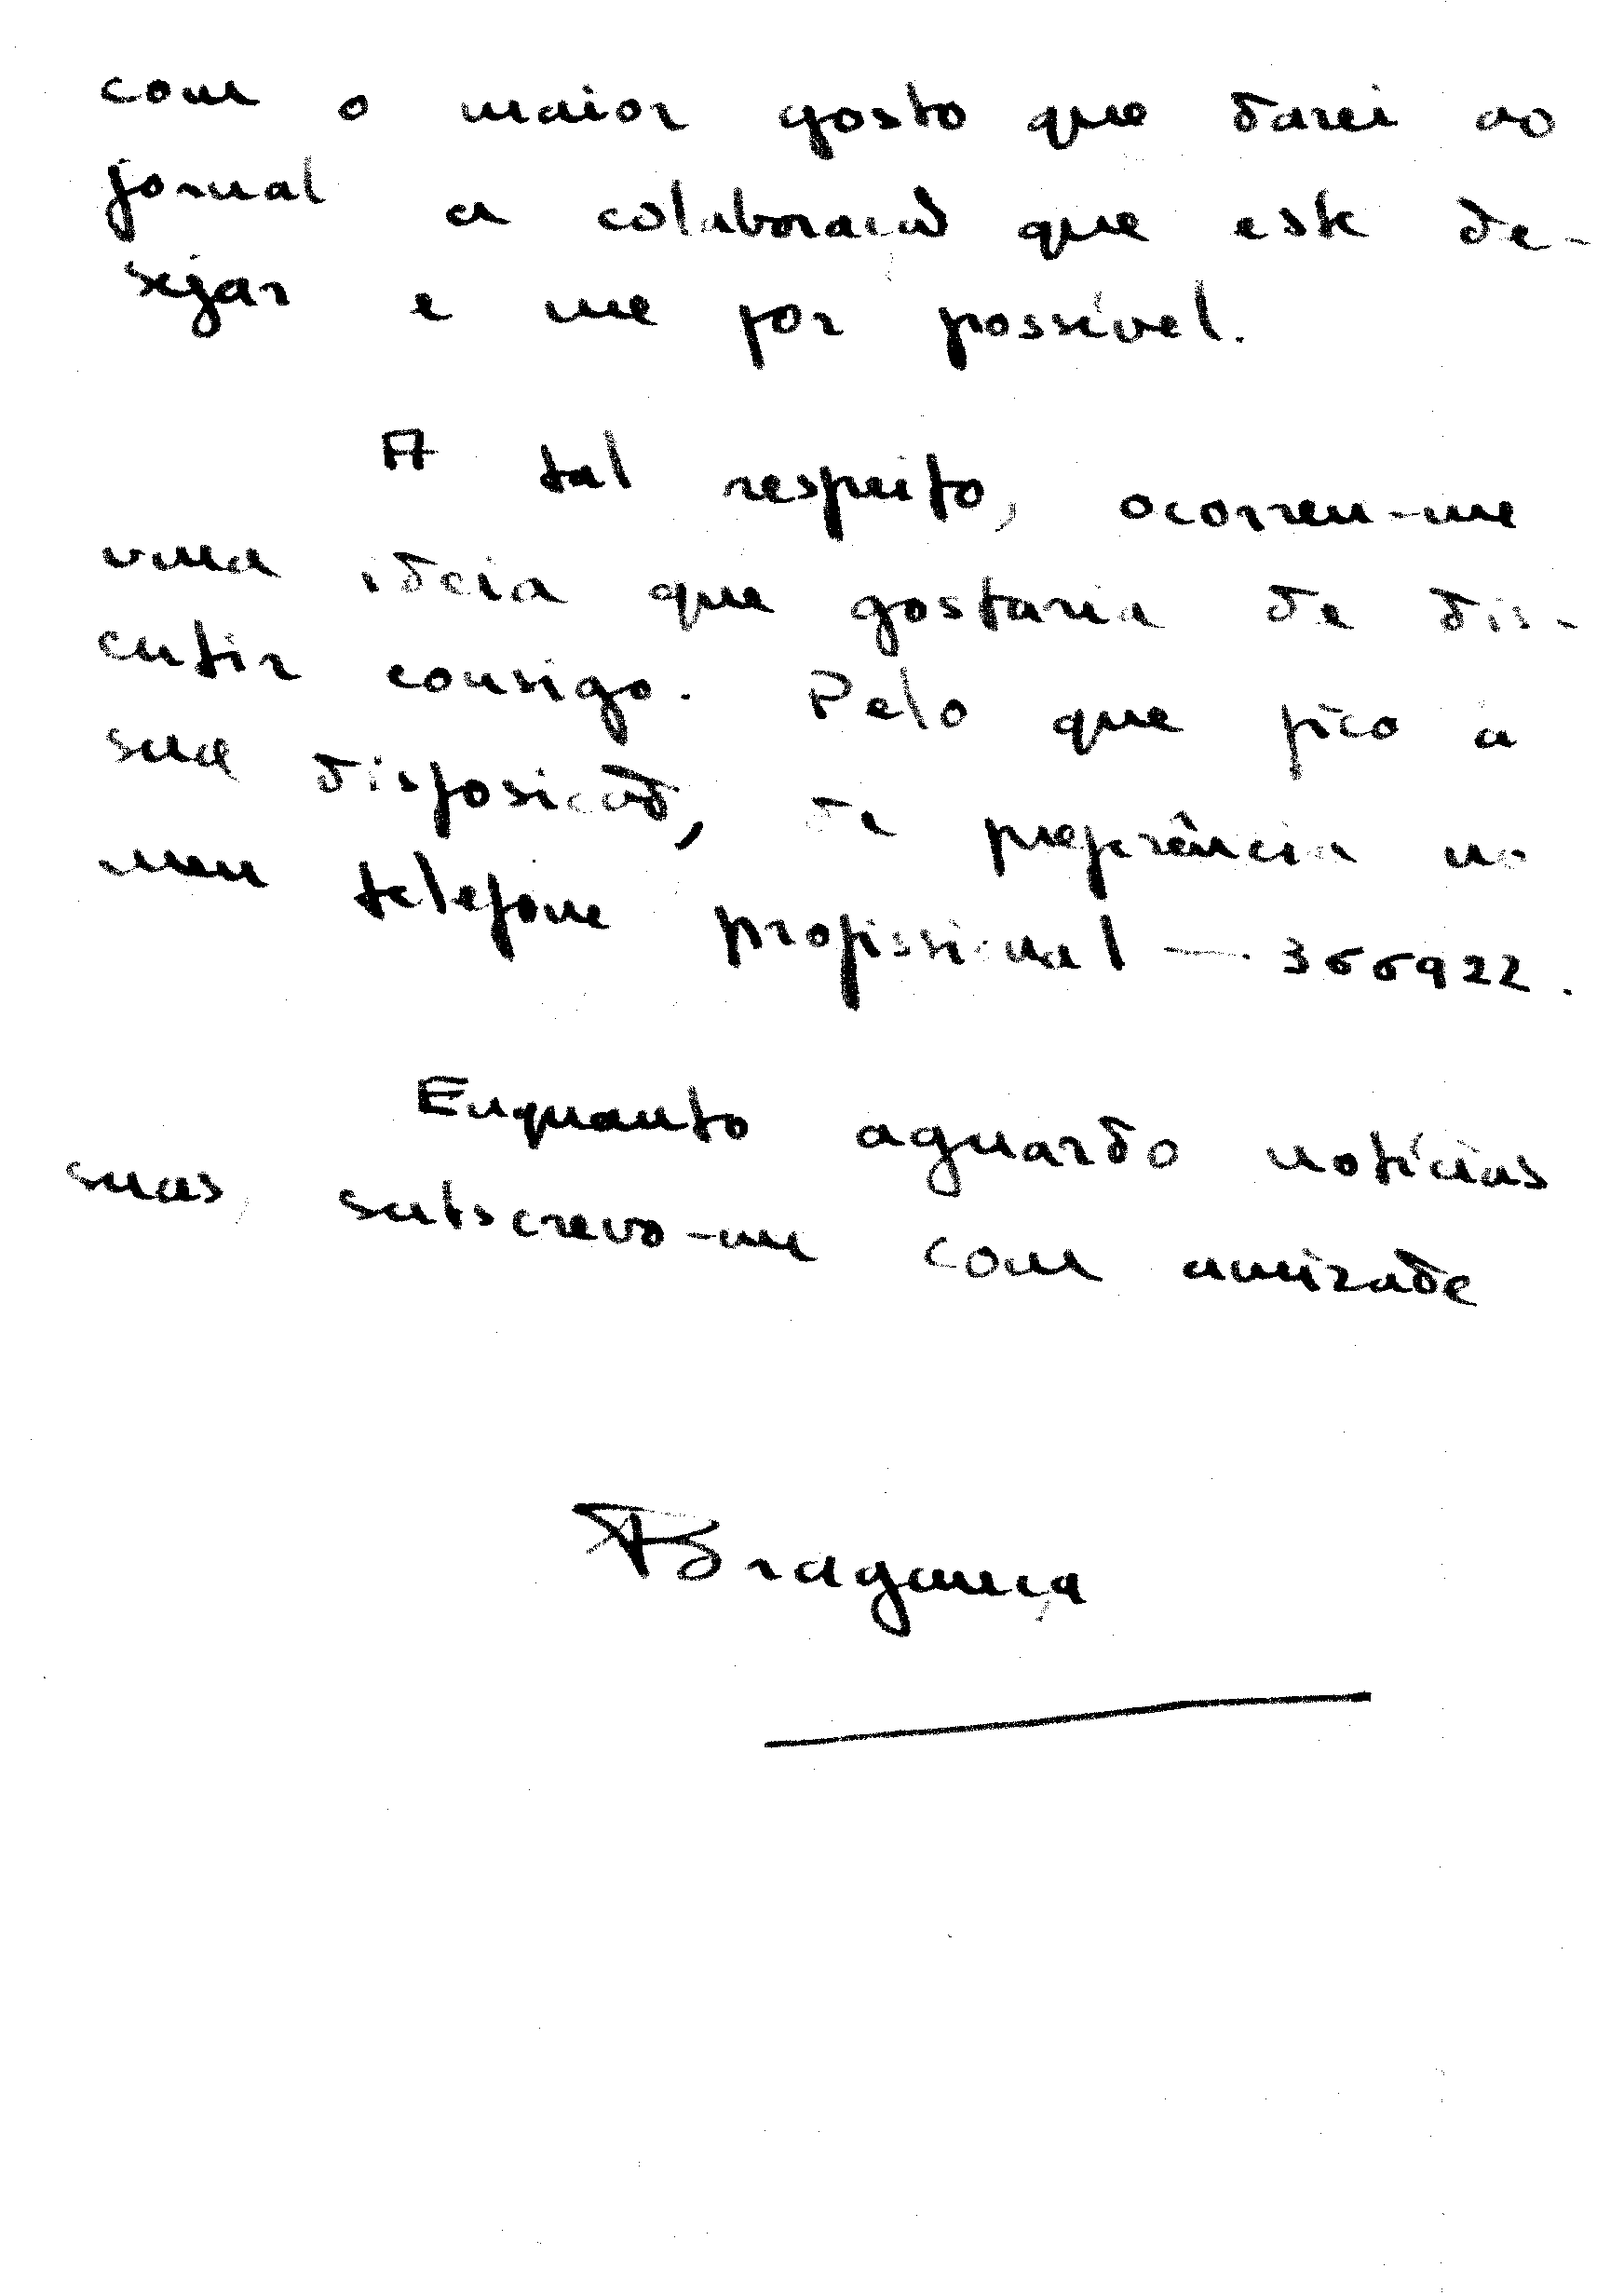 com o maior gosto que darei ao
jornal a colaboração que este de-
sejar e me for possível.
A tal respeito, ocorreu-me
uma ideia que gostaria de dis-
cutir consigo. Pelo que fico a
sua disposição, de preferência no
meu telefone profissional — 366922.
Enquanto aguardo notícias
suas, subscrevo-me com amizade
ABragança